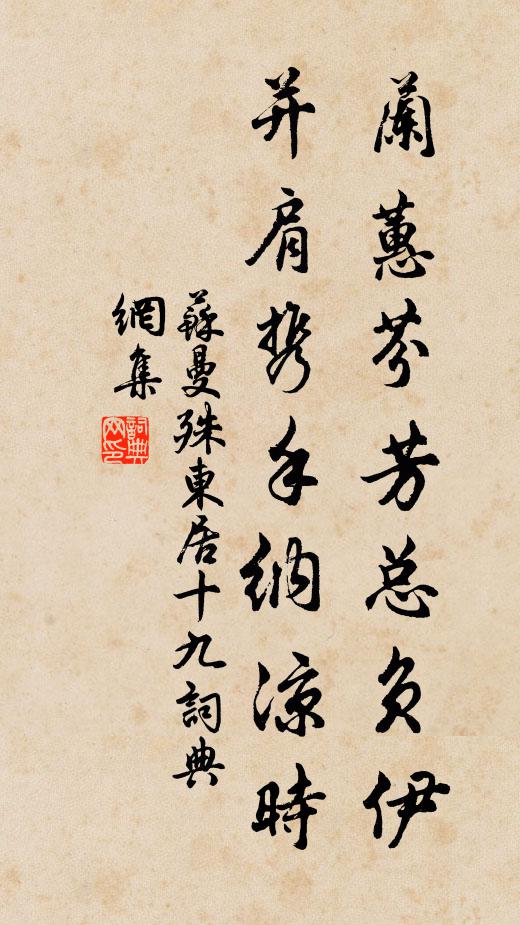 蘭蕙芬芳总負伊
并肩携手納凉時
蘇曼殊東居十九詞典
網集
詞典網印